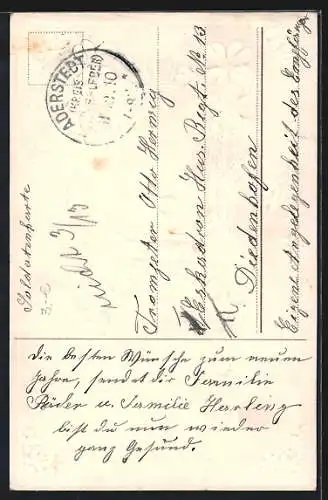 ADERSTEDT
(KREIS
OSCHERSLEBEN)
10
Soldatenkarte
Trompeter Otto Herwig
Eskadron Hus. Regt. No 13
Diedenhofen
Eigene Angelegenheit des Empfängers
Die besten Wünsche zum neuen
Jahre, sendet dir Familie
Räder u. Familie Herling
bist du nun wieder
ganz Gesund.